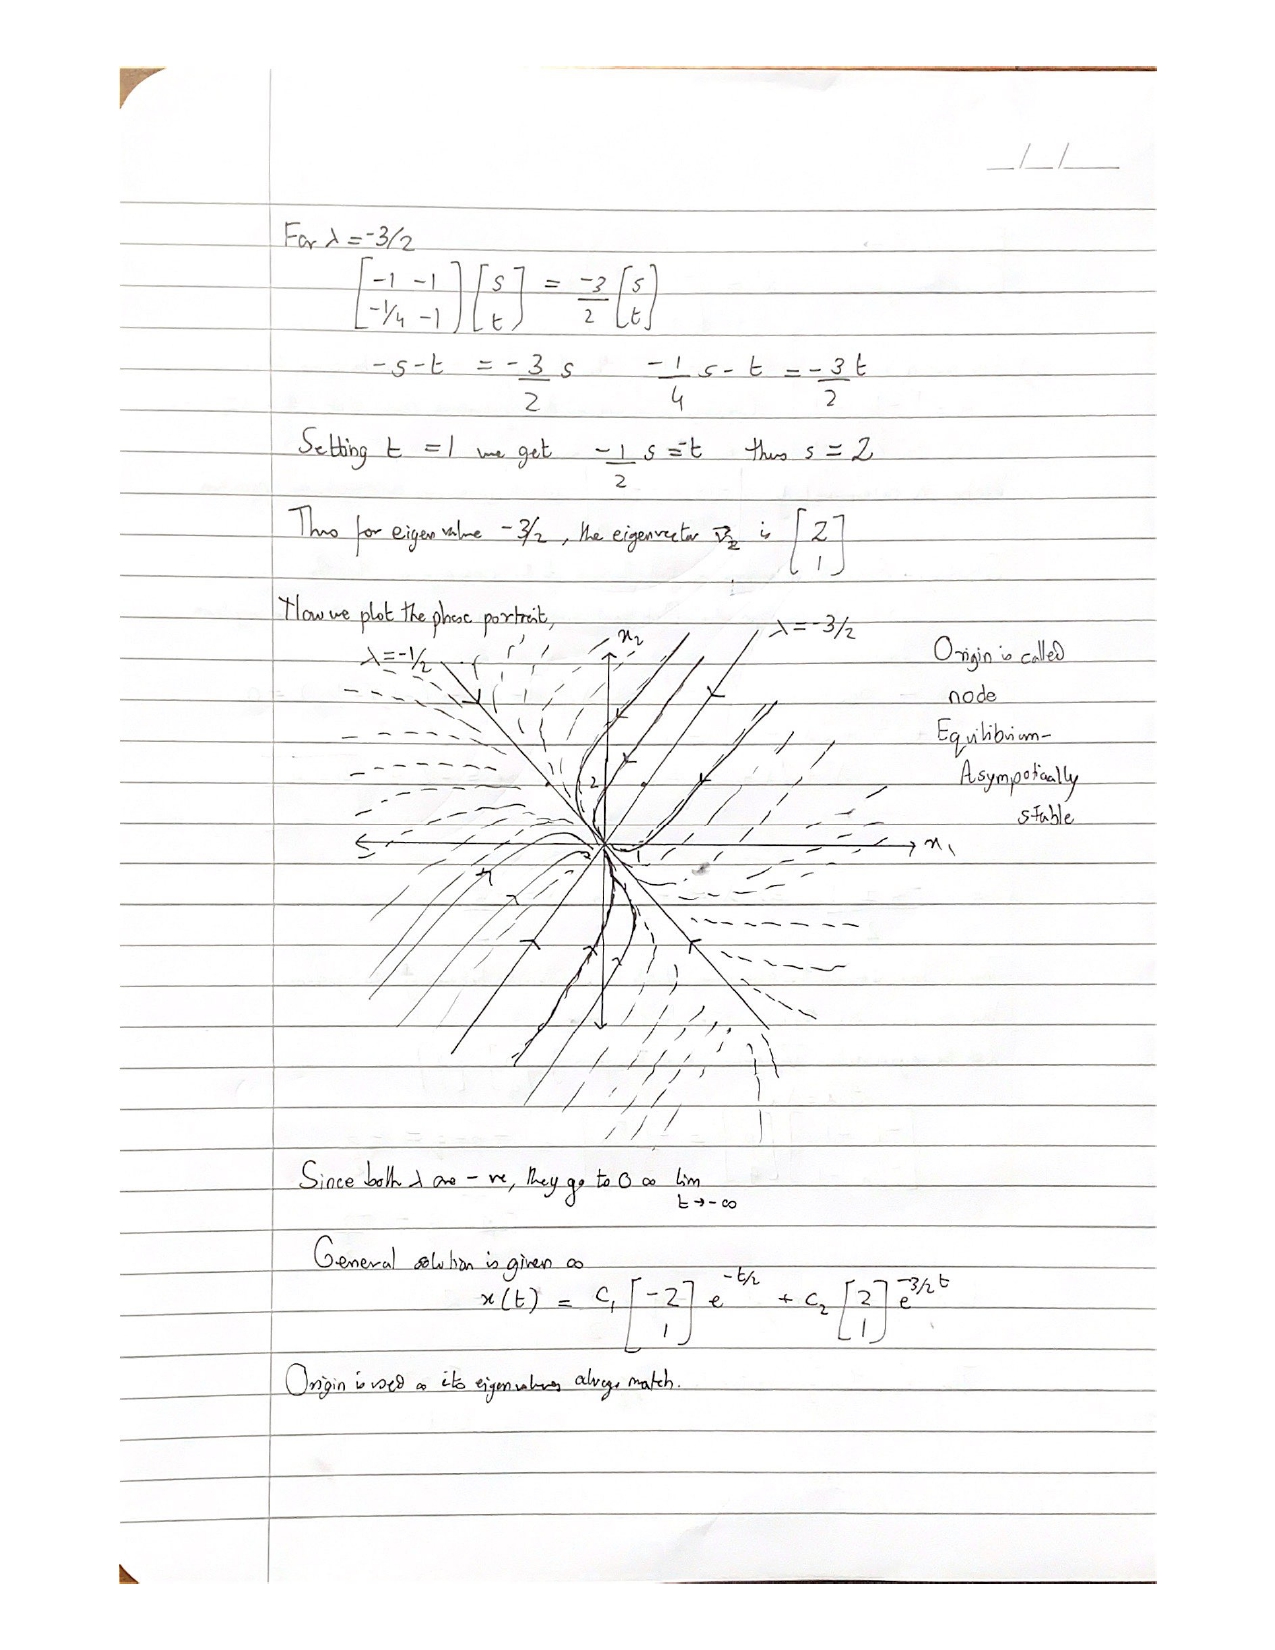 _/_/__
For λ = -3/2
[-1 -1
-1/4 -1] [s
t] = -3/2 [s
t]
-s-t = -3/2 s    -1/4 s - t = -3/2 t
Setting t = 1 we get -1/2 s = -t thus s = 2
Thus for eigen value -3/2, the eigenvector v⃗2 is [2
1]
Now we plot the phase portrait,
λ = -1/2
x2
λ = -3/2
Origin is called
node
Equilibrium-
Asympotically
stable
2
1
x1
Since both λ are -ve, they go to 0 as lim
t → -∞
General solution is given as
x(t) = C1 [-2
1] e^-t/2 + C2 [2
1] e^-3/2 t
Origin is used as its eigenvalues always match.